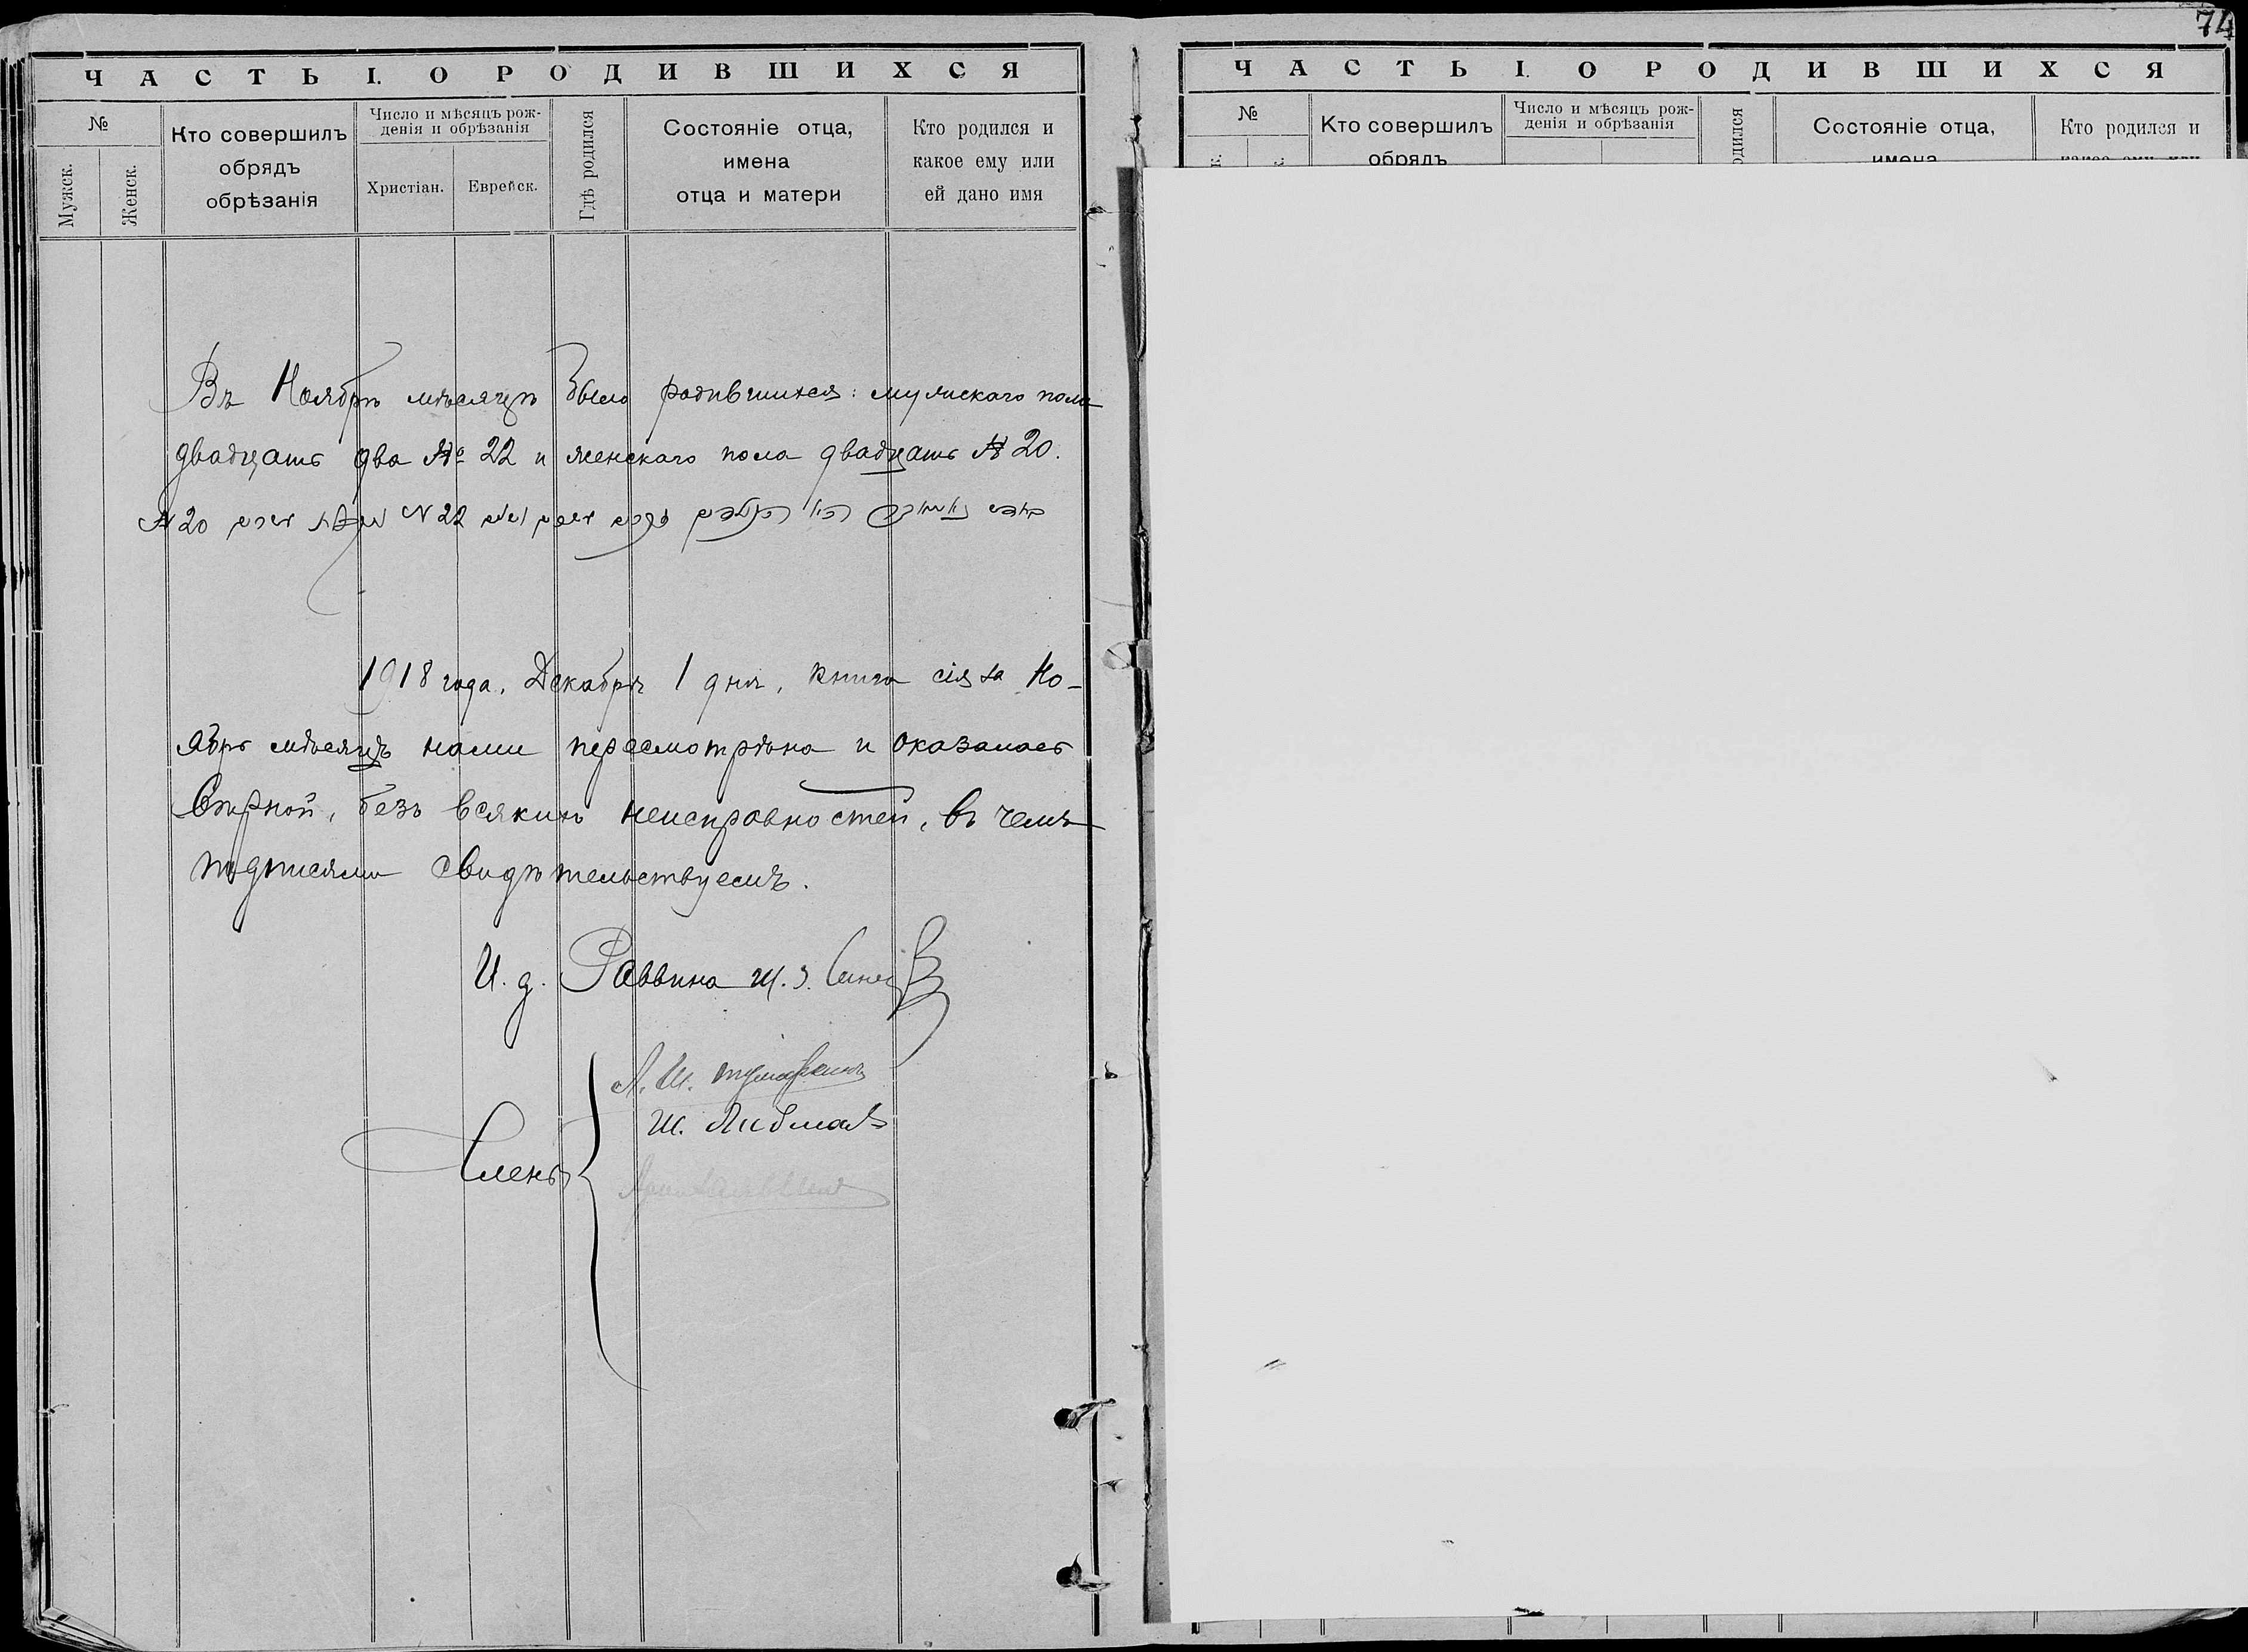 ЧАСТЬ I. О РОДИВШИХСЯ
№
Мужск.
Женск.
Кто совершилъ
обрядъ
обрѣзанія
Число и мѣсяцъ рож-
денія и обрѣзанія
Христіан.
Еврейск.
Гдѣ родился
Состояніе отца,
имена
отца и матери
Кто родился и
какое ему или
ей дано имя
Въ Ноябрѣ мѣсяцѣ было родившихся: мужскаго пола
двадцать два № 22 и женскаго пола двадцать № 20.
N 22 N 20
1918 года, Декабря 1 дня, книга сія за Но-
ябрь мѣсяцъ нами пересмотрѣна и оказалась
вѣрной, безъ всякихъ неисправностей, въ чемъ
подписями свидѣтельствуемъ.
И. д. Раввина
Члены
74
ЧАСТЬ I. О РОДИВШИХСЯ
№
Кто совершилъ
обрядъ
Число и мѣсяцъ рож-
денія и обрѣзанія
Состояніе отца,
имена
Кто родился и